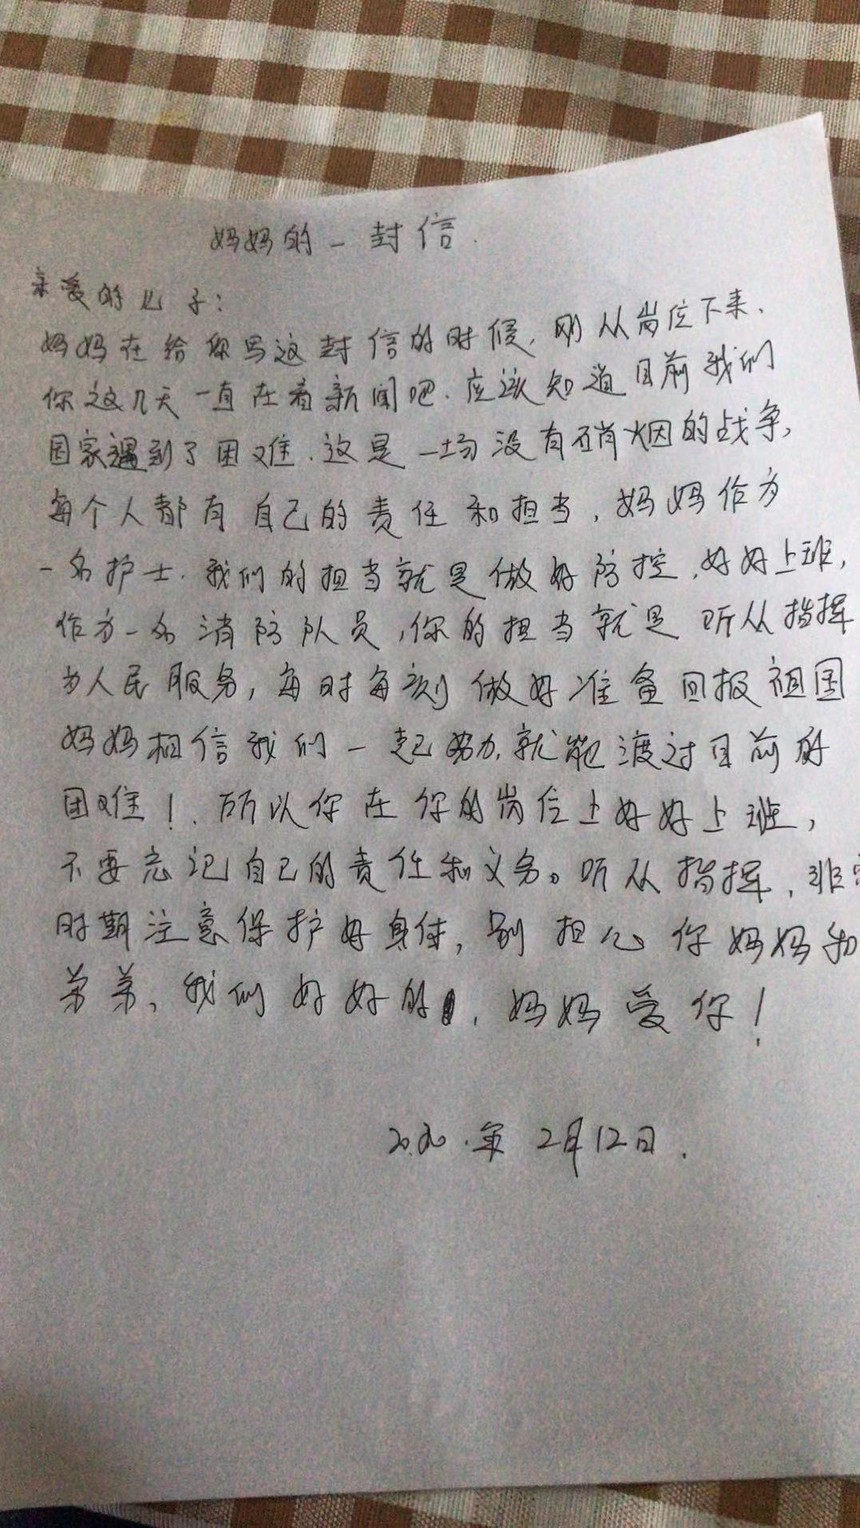 妈妈的一封信.
亲爱的儿子:
妈妈在给你写这封信的时候,刚从岗位下来、
你这几天一直在看新闻吧.应该知道目前我们
国家遇到了困难.这是一场没有硝烟的战争,
每个人都有自己的责任和担当,妈妈作为
一名护士.我们的担当就是做好防控,好好上班,
作为一名消防队员,你的担当就是听从指挥
为人民服务,每时每刻做好准备回报祖国
妈妈相信我们一起努力,就能渡过目前的
困难!.所以你在你的岗位上好好上班,
不要忘记自己的责任和义务。听从指挥,非
时期注意保护好身体,别担心你妈妈和
弟弟、我们好好的,妈妈爱你!
2020.年2月12日.